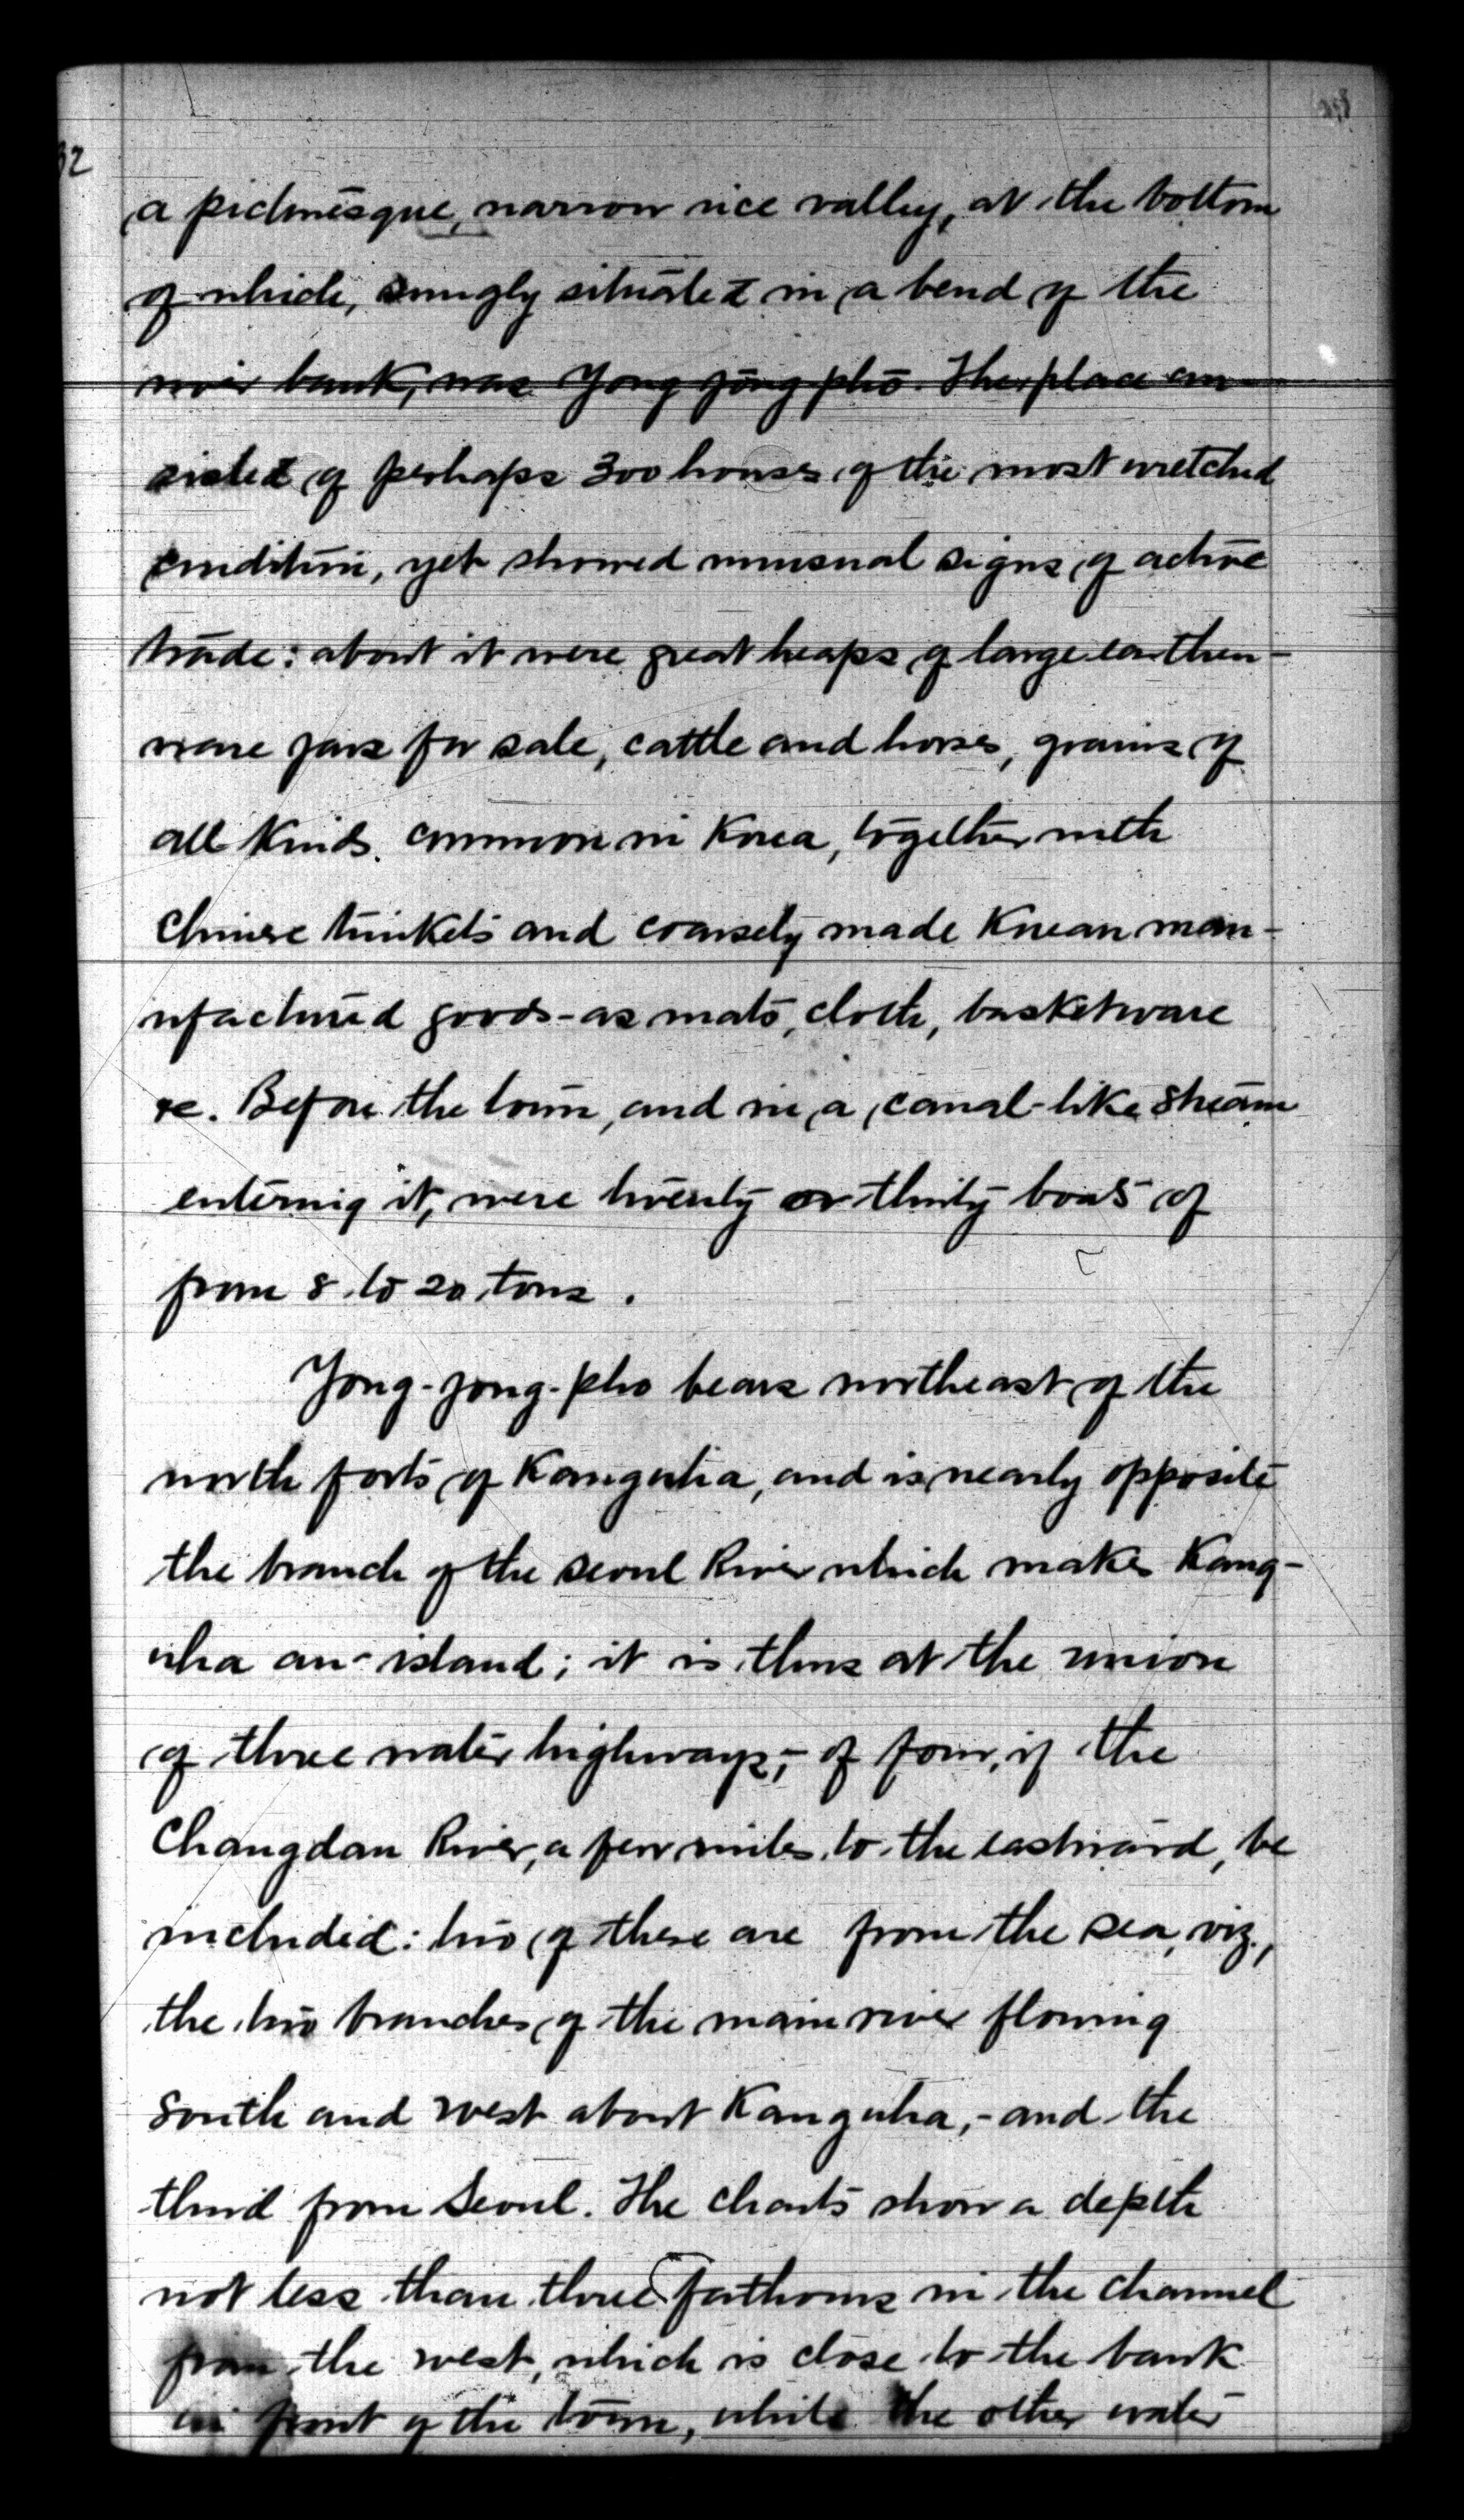 32
a picturesque, narrow rice valley, at the bottom
of which, snugly situated in a bend of the
river bank, was Yong-jong-pho. The place con-
sisted of perhaps 300 houses of the most wretched
condition, yet showed unusual signs of active
trade: about it were great heaps of large earthen-
ware jars for sale, cattle and horses, grains of
all kinds common in Korea, together with
Chinese trinkets and coarsely made Korean man-
ufactured goods - as mats, cloth, basketware
&c. Before the town, and in a canal-like stream
entering it, were twenty or thirty boats of
from 8 to 20 tons.
Yong-jong-pho bears northeast of the
north forts of Kangwha, and is nearly opposite
the branch of the Seoul River which makes Kang-
wha an island; it is thus at the union
of three water highways, - of four, if the
Changdan River, a few miles to the eastward, be
included: two of these are from the sea, viz.,
the two branches of the main river flowing
south and west about Kangwha, - and the
third from Seoul. The charts show a depth
not less than three fathoms in the channel
from the west, which is close to the bank
in front of the town, while the other water